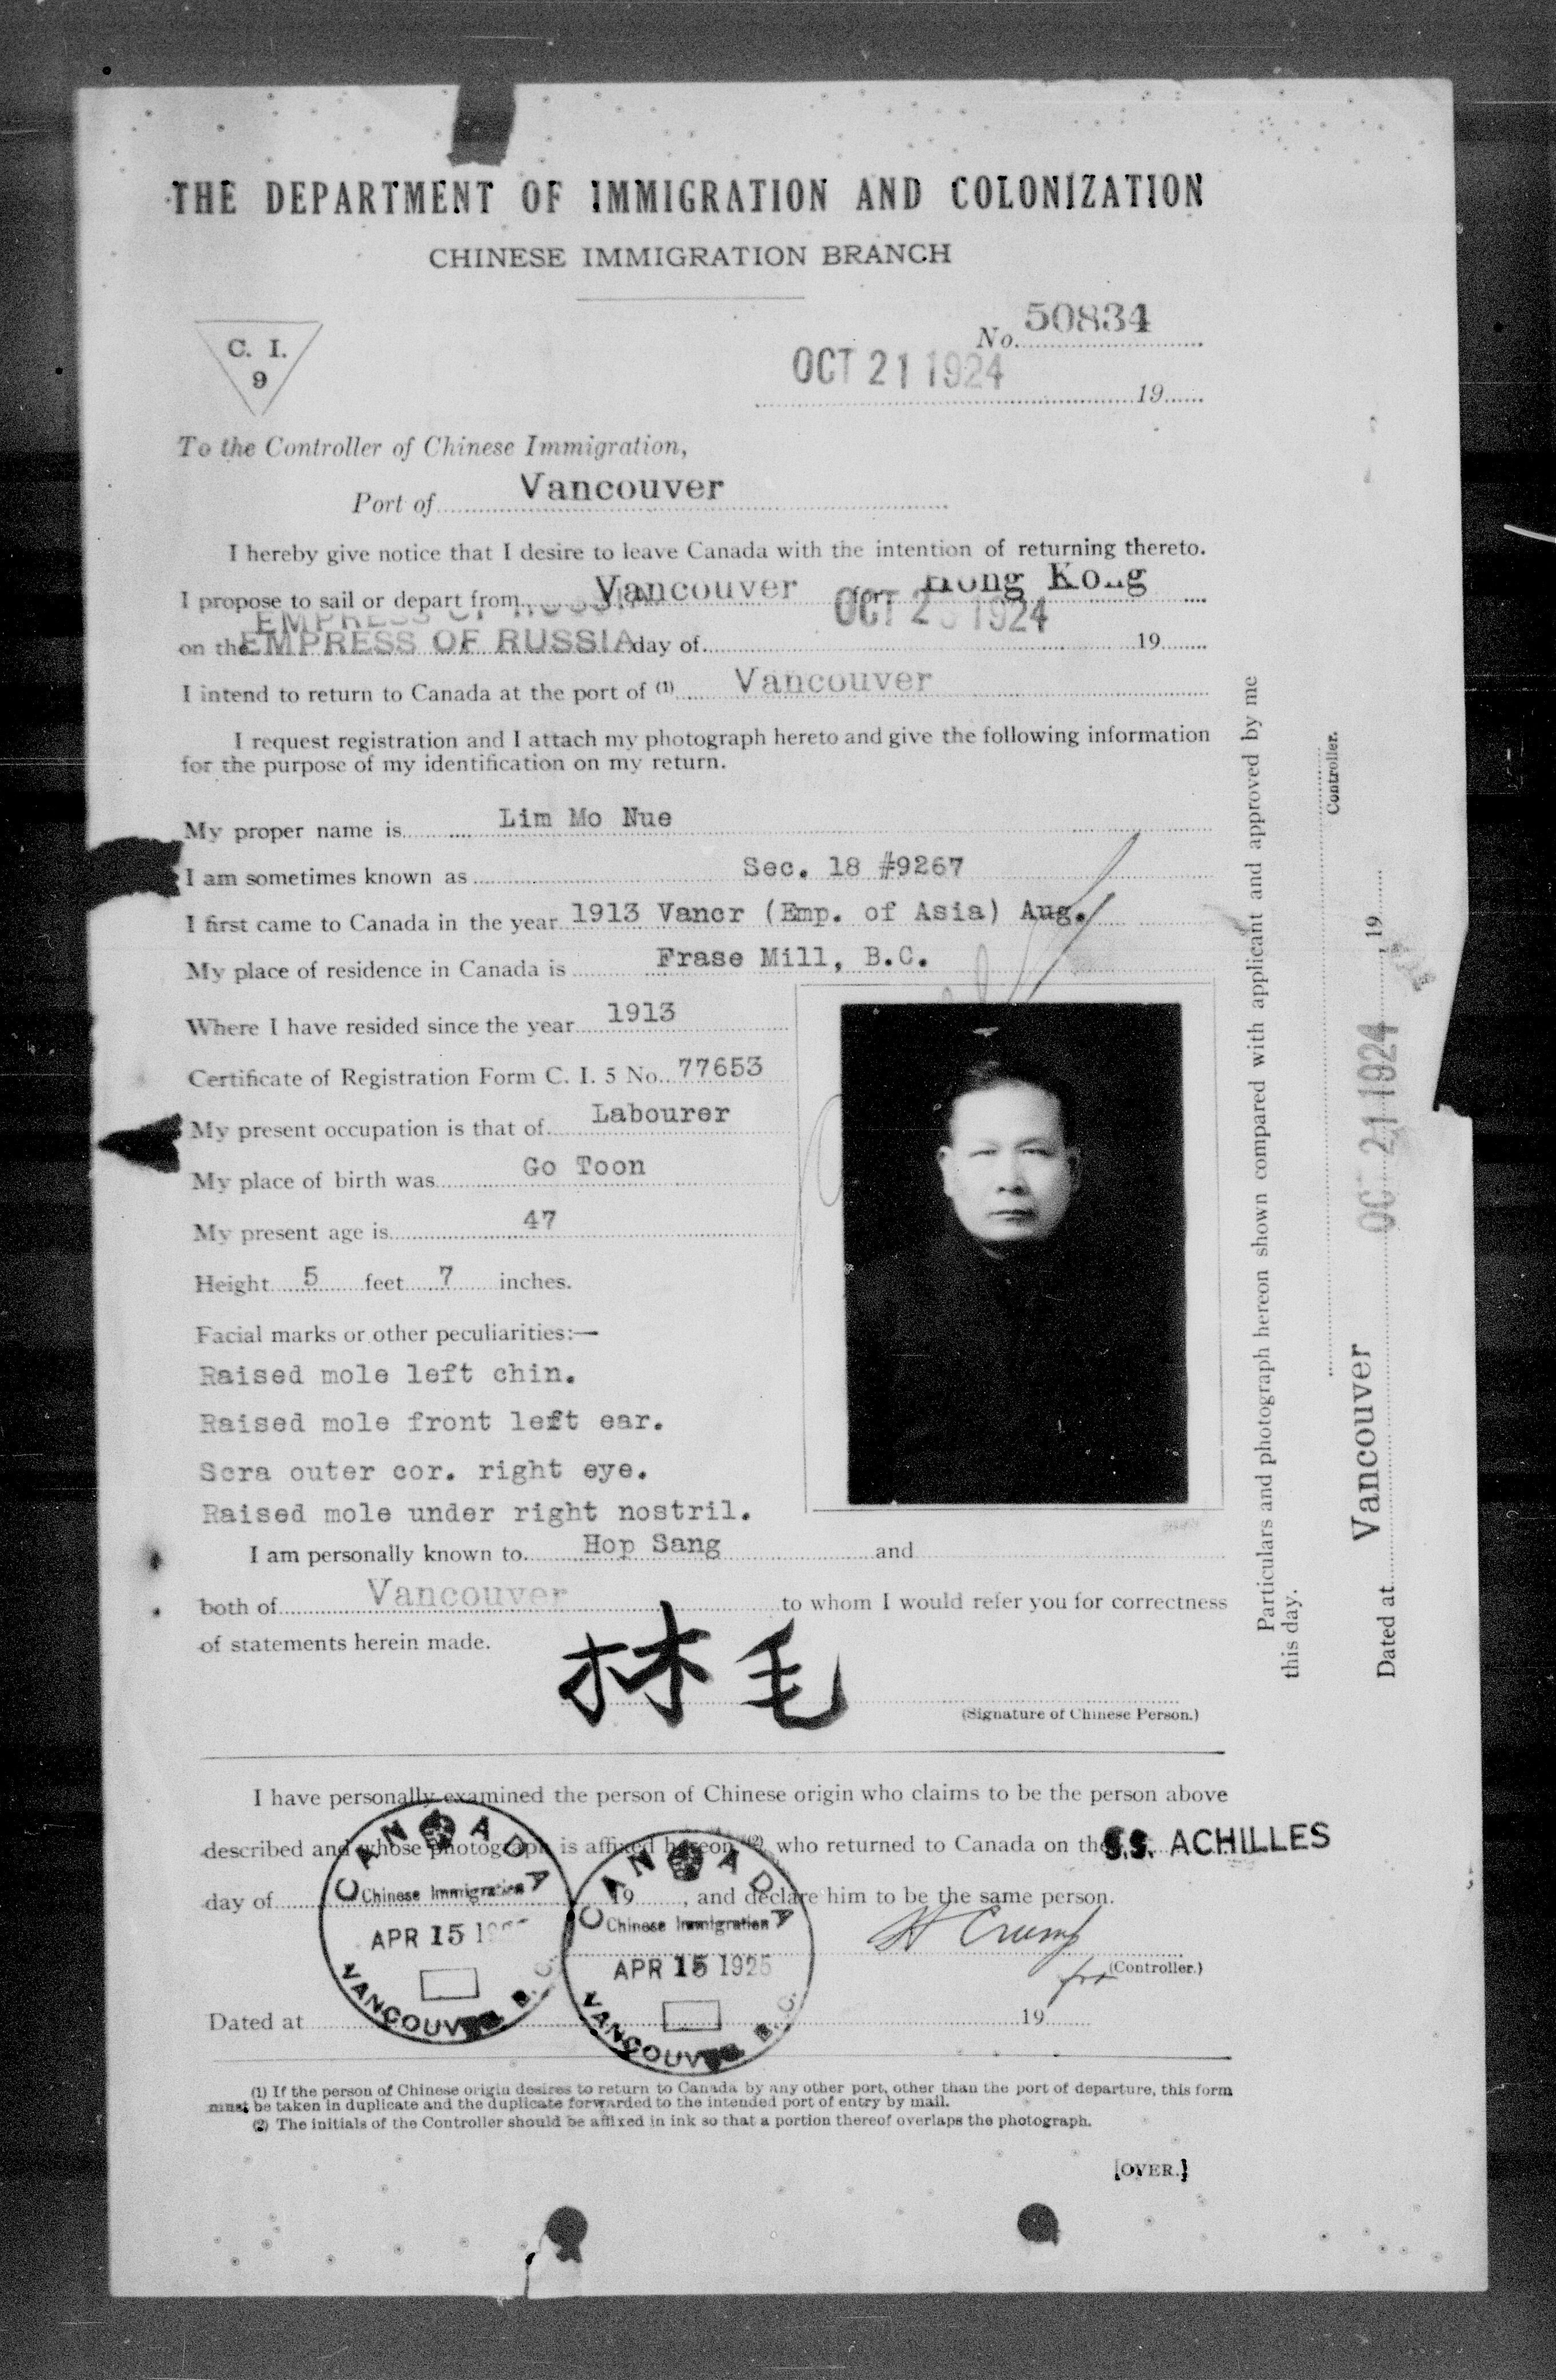 THE DEPARTMENT OF IMMIGRATION AND COLONIZATION
CHINESE IMMIGRATION BRANCH
C. I.
9
No. 50834
OCT 21 1924 19
To the Controller of Chinese Immigration,
Port of Vancouver
I hereby give notice that I desire to leave Canada with the intention of returning thereto.
I propose to sail or depart from Vancouver for Hong Kong
EMPRESS OF RUSSIA OCT 1924
on the EMPRESS OF RUSSIA day of 19
I intend to return to Canada at the port of (1) Vancouver
I request registration and I attach my photograph hereto and give the following information
for the purpose of my identification on my return.
My proper name is Lim Mo Nue
I am sometimes known as Sec. 18 #9267
I first came to Canada in the year 1913 Vancr (Emp. of Asia) Aug.
My place of residence in Canada is Frase Mill, B.C.
Where I have resided since the year 1913
Certificate of Registration Form C. I. 5 No. 77653
My present occupation is that of Labourer
My place of birth was Go Toon
My present age is 47
Height 5 feet 7 inches.
Facial marks or other peculiarities:—
Raised mole left chin.
Raised mole front left ear.
Scra outer cor. right eye.
Raised mole under right nostril.
I am personally known to Hop Sang and
both of Vancouver to whom I would refer you for correctness
of statements herein made.
林毛
(Signature of Chinese Person.)
I have personally examined the person of Chinese origin who claims to be the person above
described and whose photograph is affixed hereon (2) who returned to Canada on the S.S. ACHILLES
day of 19 , and declare him to be the same person.
H Crump
for (Controller.)
Dated at 19
CANADA
Chinese Immigration
APR 15
VANCOUVER B.C.
CANADA
Chinese Immigration
APR 15 1925
VANCOUVER B.C.
(1) If the person of Chinese origin desires to return to Canada by any other port, other than the port of departure, this form
must be taken in duplicate and the duplicate forwarded to the intended port of entry by mail.
(2) The initials of the Controller should be affixed in ink so that a portion thereof overlaps the photograph.
[OVER.]
Particulars and photograph hereon shown compared with applicant and approved by me
this day.
Controller.
Dated at Vancouver OCT 21 1924, 19